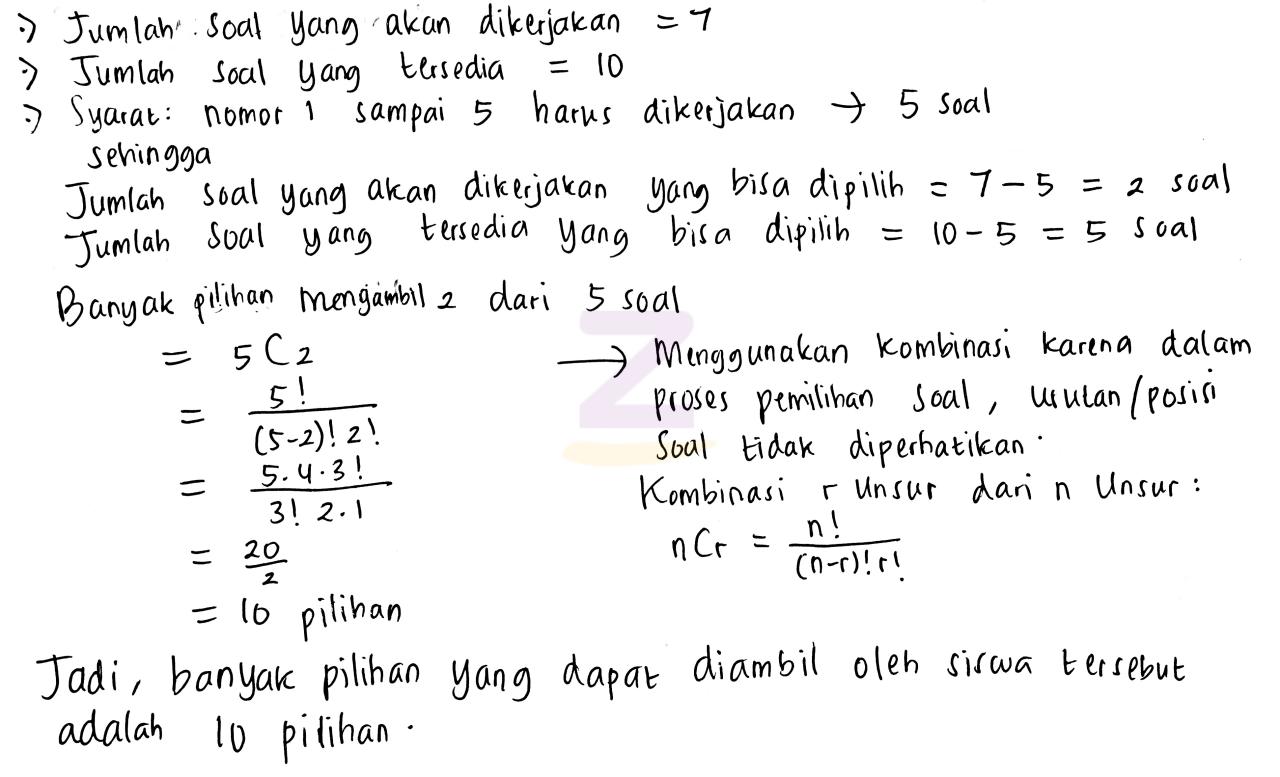 :) Jumlah soal yang akan dikerjakan = 7
:) Jumlah soal yang tersedia = 10
:) Syarat: nomor 1 sampai 5 harus dikerjakan → 5 soal
sehingga
Jumlah soal yang akan dikerjakan yang bisa dipilih = 7 - 5 = 2 soal
Jumlah soal yang tersedia yang bisa dipilih = 10 - 5 = 5 soal
Banyak pilihan mengambil 2 dari 5 soal
= 5C2
= 5! / (5-2)! 2!
= 5.4.3! / 3! 2.1
= 20/2
= 10 pilihan
→ Menggunakan kombinasi karena dalam
proses pemilihan soal, urutan/posisi
soal tidak diperhatikan.
Kombinasi r unsur dari n unsur:
nCr = n! / (n-r)! r!
Jadi, banyak pilihan yang dapat diambil oleh siswa tersebut
adalah 10 pilihan.
Z